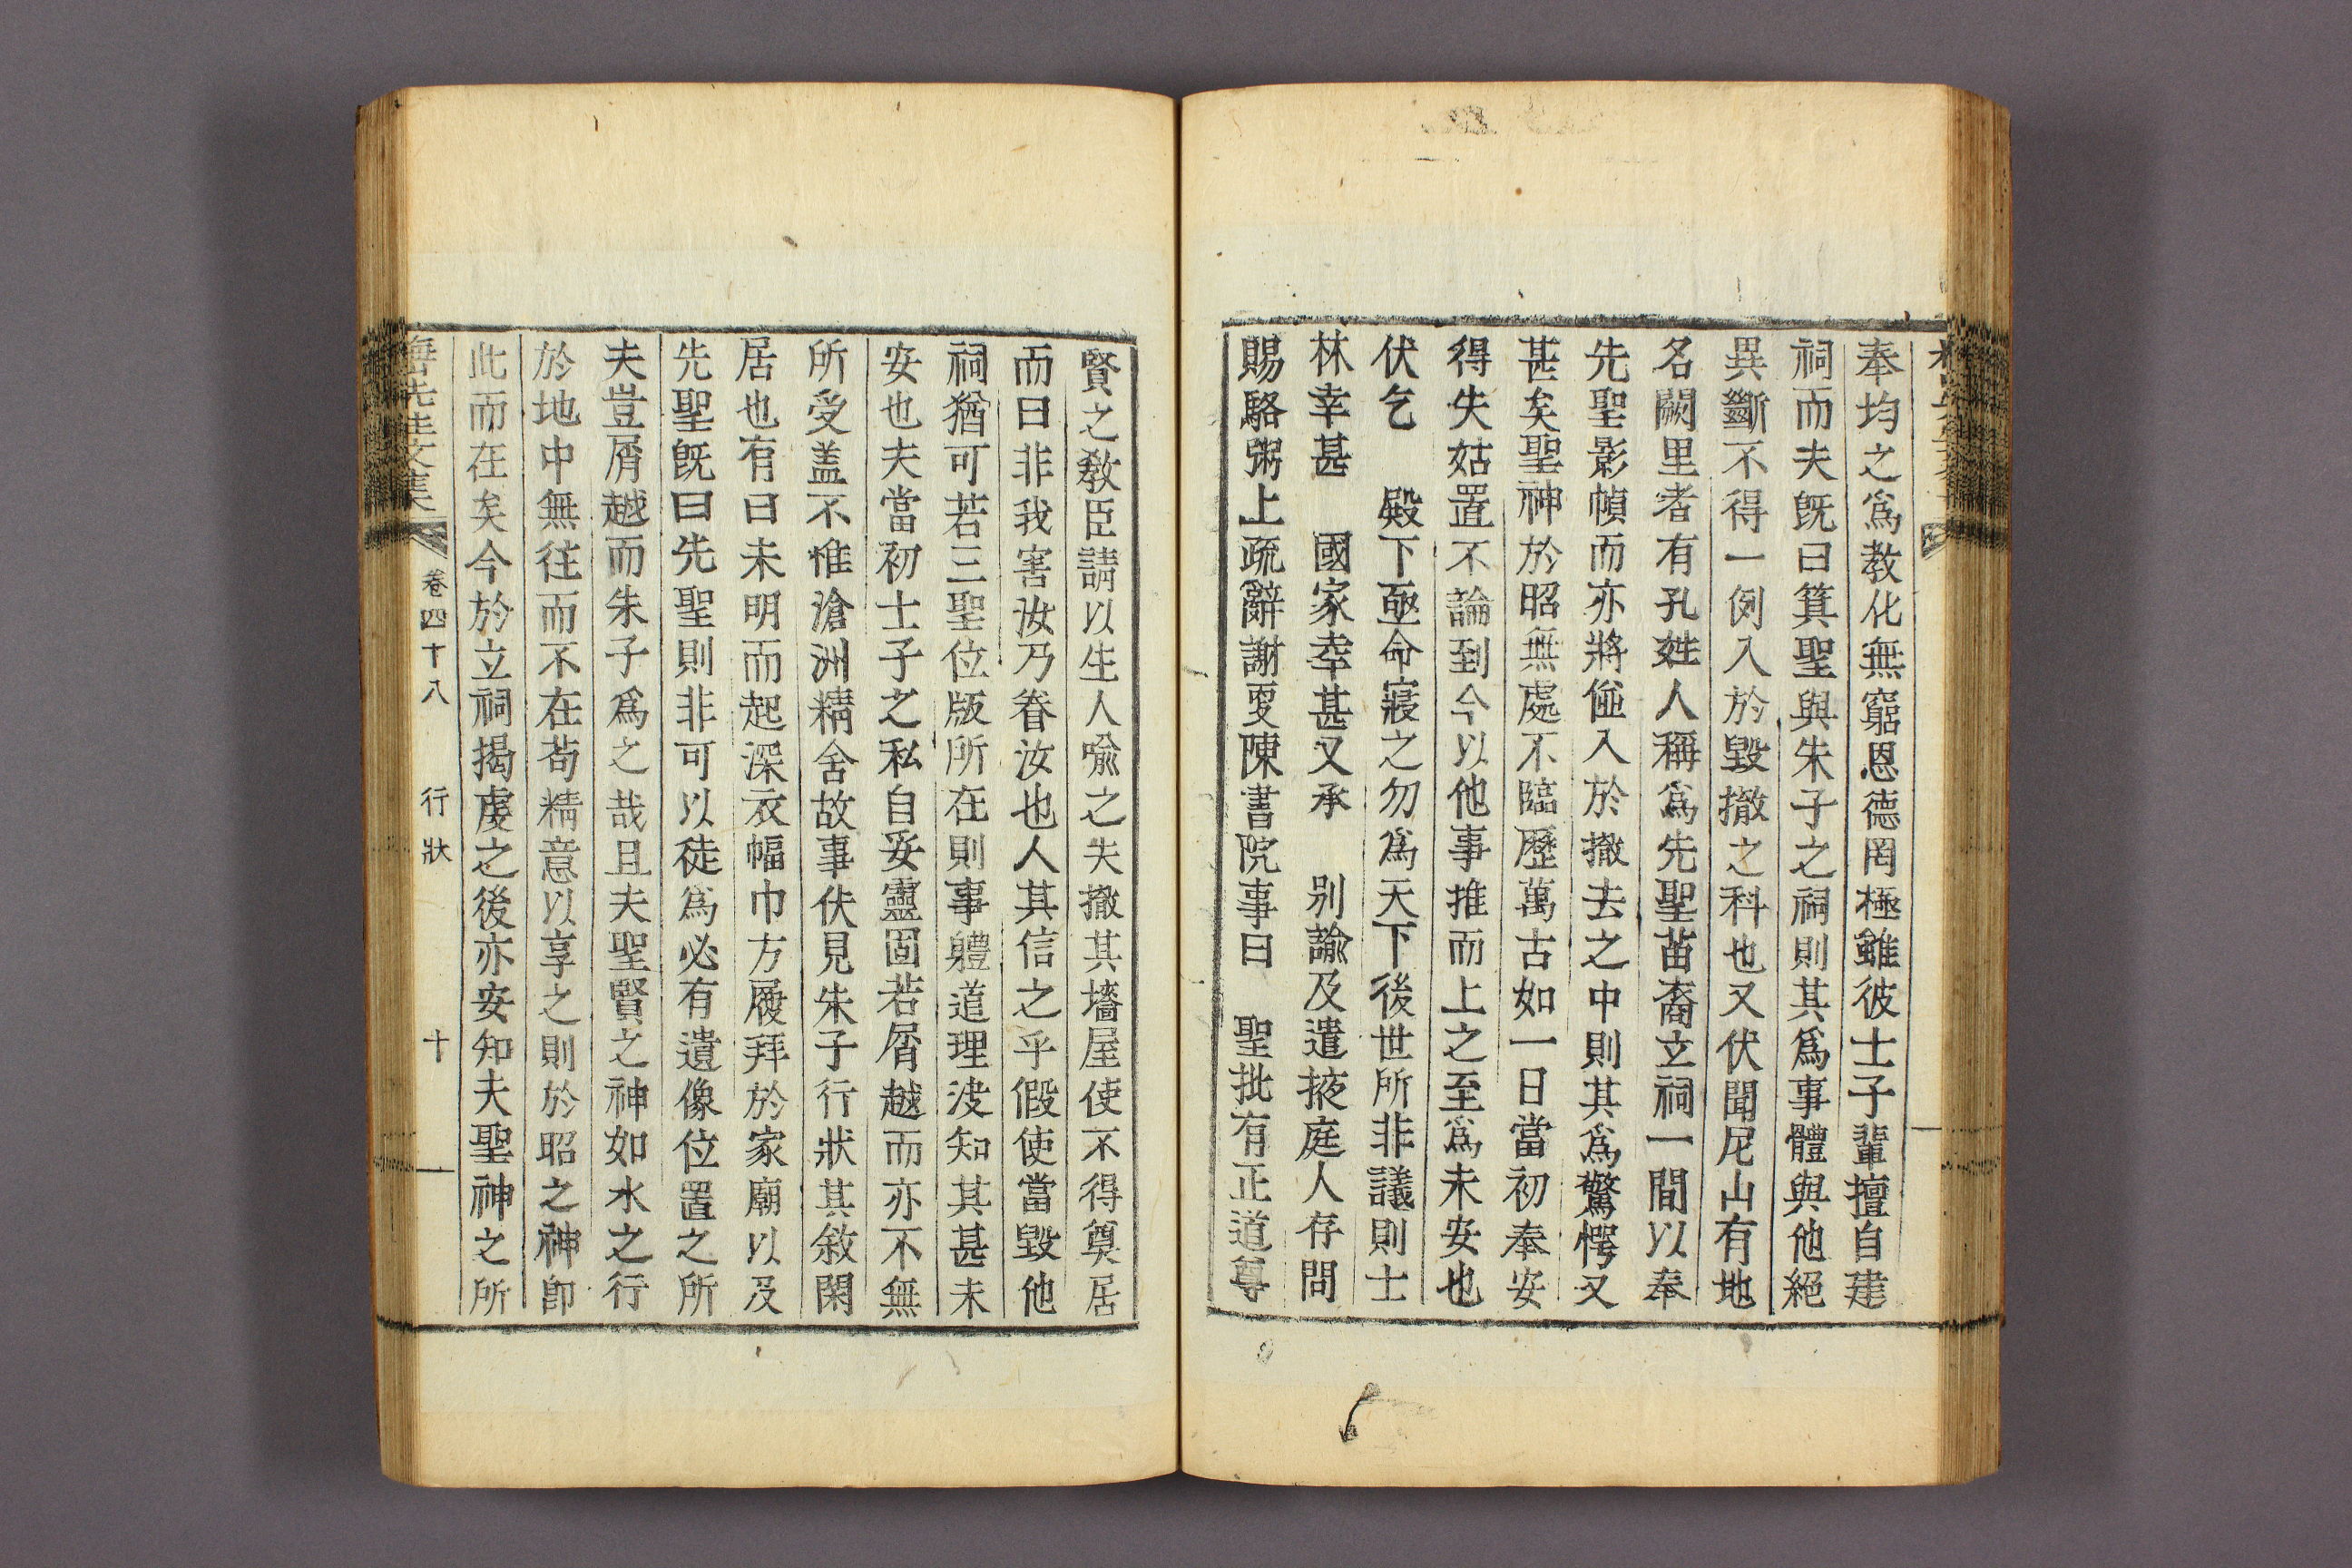 奉均之爲教化無窮恩德罔極雖彼士子輩擅自建
祠而夫旣曰箕聖與朱子之祠則其爲事體與他絕
異斷不得一例入於毀撤之科也又伏聞尼山有地
名闕里者有孔姓人稱爲先聖苗裔立祠一間以奉
先聖影幀而亦將倂入於撤去之中則其爲驚愕又
甚矣聖神於昭無處不臨歷萬古如一日當初奉安
得失姑置不論到今以他事推而上之至爲未安也
伏乞 殿下亟命寢之勿爲天下後世所非議則士
林幸甚 國家幸甚又承 別諭及遣掖庭人存問
賜駱粥上疏辭謝更陳書院事曰 聖批有正道尊
賢之敎臣請以生人喩之夫撤其墻屋使不得奠居
而曰非我害汝乃眷汝也人其信之乎假使當毀他
祠猶可若三聖位版所在則事軆道理决知其甚未
安也夫當初士子之私自妥靈固若屑越而亦不無
所受盖不惟滄洲精舍故事伏見朱子行狀其敘閑
居也有曰未明而起深衣幅巾方履拜於家廟以及
先聖旣曰先聖則非可以徒爲必有遺像位置之所
夫豈屑越而朱子爲之哉且夫聖賢之神如水之行
於地中無往而不在苟精意以享之則於昭之神卽
此而在矣今於立祠揭虔之後亦安知夫聖神之所
先生文集 卷四十八 行狀 十